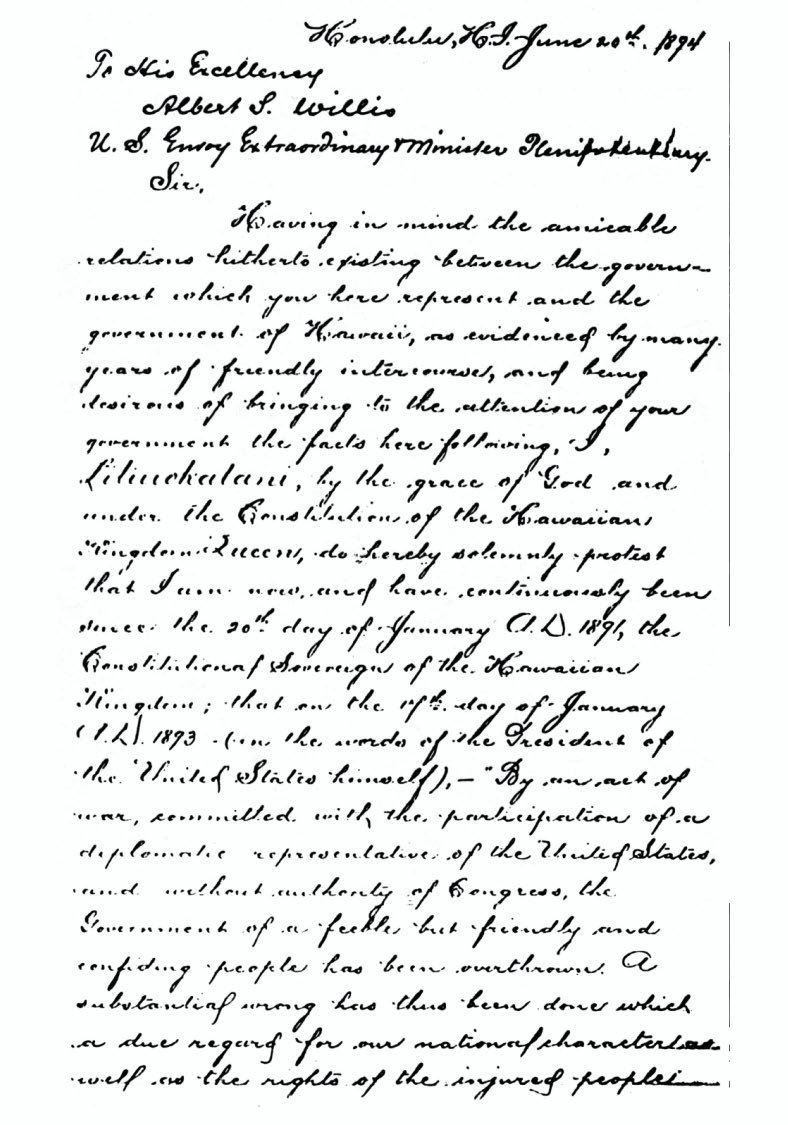 Honolulu, H.I. June 20th. 1894
To His Excellency
Albert S. Willis
U. S. Envoy Extraordinary & Minister Plenipotentiary.
Sir,
Having in mind the amicable
relations hitherto existing between the govern-
ment which you here represent and the
government of Hawaii, as evidenced by many
years of friendly intercourse, and being
desirous of bringing to the attention of your
government the facts here following, I,
Liliuokalani, by the grace of God and
under the Constitution of the Hawaiian
Kingdom Queen, do hereby solemnly protest
that I am now, and have continuously been
since the 20th day of January A.D. 1891, the
Constitutional Sovereign of the Hawaiian
Kingdom; that on the 17th day of January
A.D. 1893 (in the words of the President of
the United States himself), — "By an act of
war, committed with the participation of a
diplomatic representative of the United States,
and without authority of Congress, the
Government of a feeble but friendly and
confiding people has been overthrown. A
substantial wrong has thus been done which
a due regard for our national character as
well as the rights of the injured people